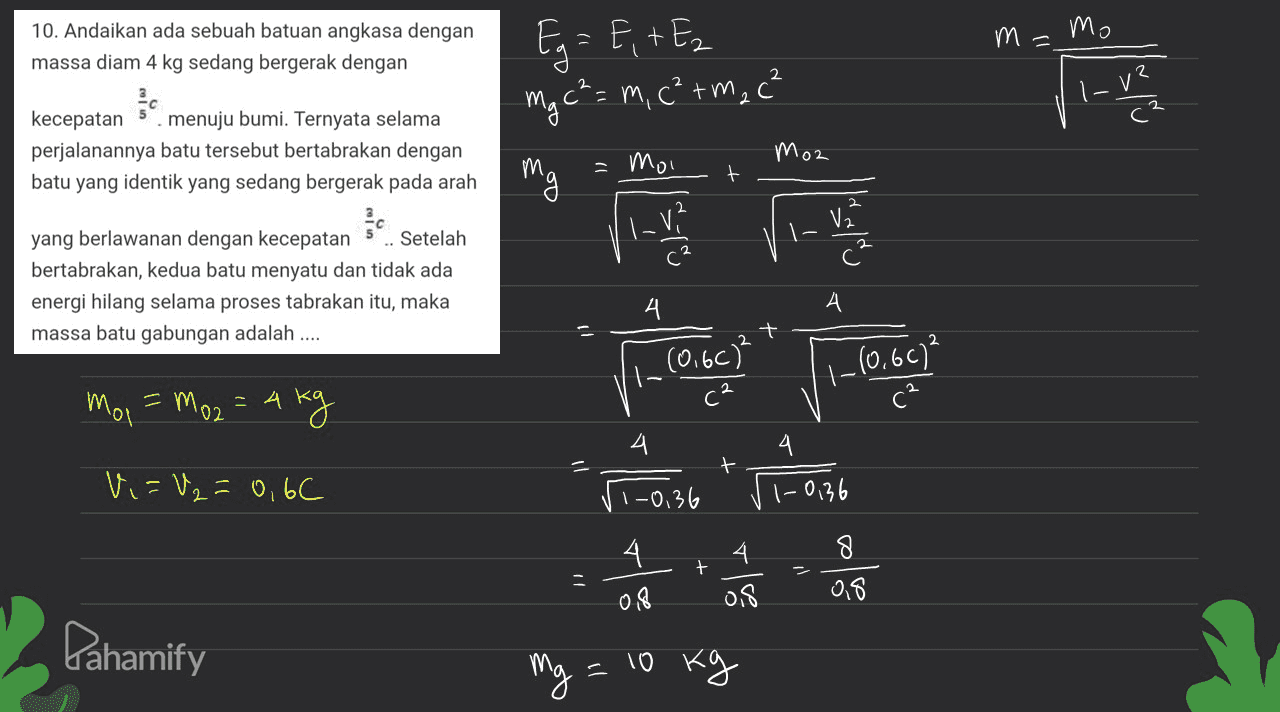 10. Andaikan ada sebuah batuan angkasa dengan
massa diam 4 kg sedang bergerak dengan
kecepatan 3/5 c . menuju bumi. Ternyata selama
perjalanannya batu tersebut bertabrakan dengan
batu yang identik yang sedang bergerak pada arah
yang berlawanan dengan kecepatan 3/5 c .. Setelah
bertabrakan, kedua batu menyatu dan tidak ada
energi hilang selama proses tabrakan itu, maka
massa batu gabungan adalah ....
m₀₁ = m₀₂ = 4 kg
v₁ = v₂ = 0,6c
E_g = E₁ + E₂
m_g c² = m₁c² + m₂c²
m_g = m₀₁/√(1-v₁²/c²) + m₀₂/√(1-v₂²/c²)
= 4/√(1-(0,6c)²/c²) + 4/√(1-(0,6c)²/c²)
= 4/√(1-0,36) + 4/√(1-0,36)
= 4/0,8 + 4/0,8 = 8/0,8
m_g = 10 kg
m = m₀/√(1-v²/c²)
Pahamify